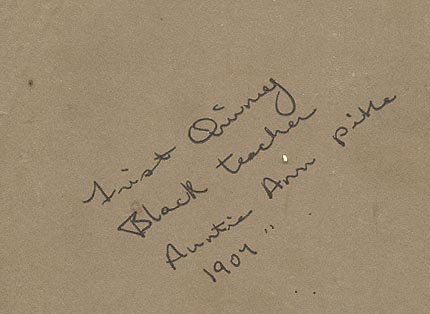 First Quincy
Black teacher
Auntie Ann Pike
1907"